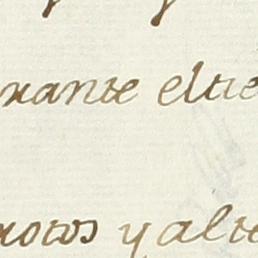 rante eltie
rotos y alte